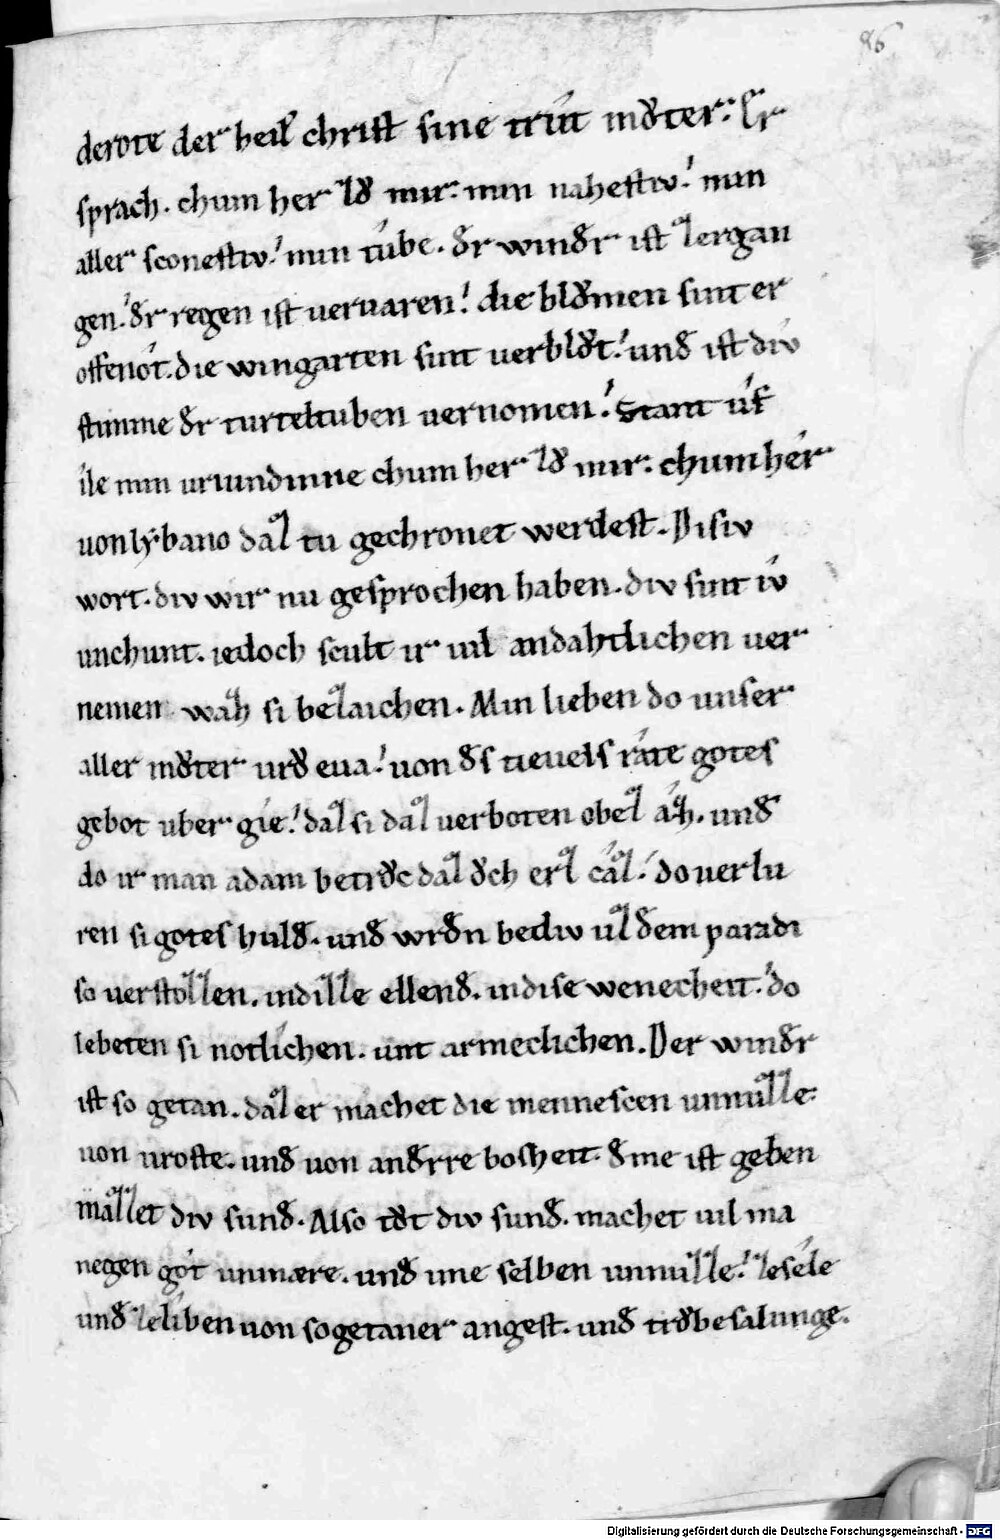 86
derote der heil christ sine trût můter. Er
sprach. chum her zů mir. min nahestiv! min
aller sconestiv! min tûbe. der winder ist zergan
gen! der regen ist vervaren! die blůmen sint er
offenôt. die wingarten sint verblůt! und ist div
stimme der turteltuben vernomen! Stant ûf
ile min vriundinne chum her zů mir. chum her
von lybano daz tu gechronet werdest. Disiv
wort. div wir nu gesprochen haben. div sint iv
unchunt. iedoch scult ir vil andahtlichen ver
nemen waz si bezaichen. Min lieben do unser
aller můter vrǒ eva! von des tievels râte gotes
gebot uber gie! daz si daz verboten obez âz. und
do ir man adam betrǒc daz ǒch erz âz! do verlu
ren si gotes hulde. und wrden bediv ûz dem paradi
so verstozzen. in dizze ellende. in dise wenecheit. do
lebeten si notlichen. unt armeclichen. Der winder
ist so getan. daz er machet die mennescen unmůzze
von vroste. und von anderre bosheit. deme ist geben
mazzet div sunde. Also tůt div sunde. machet vil ma
negen got unmære. und ime selben unmuzze! ze sele
und ze lîben von sogetaner angest. und trůbesalunge.
Digitalisierung gefördert durch die Deutsche Forschungsgemeinschaft - DFG